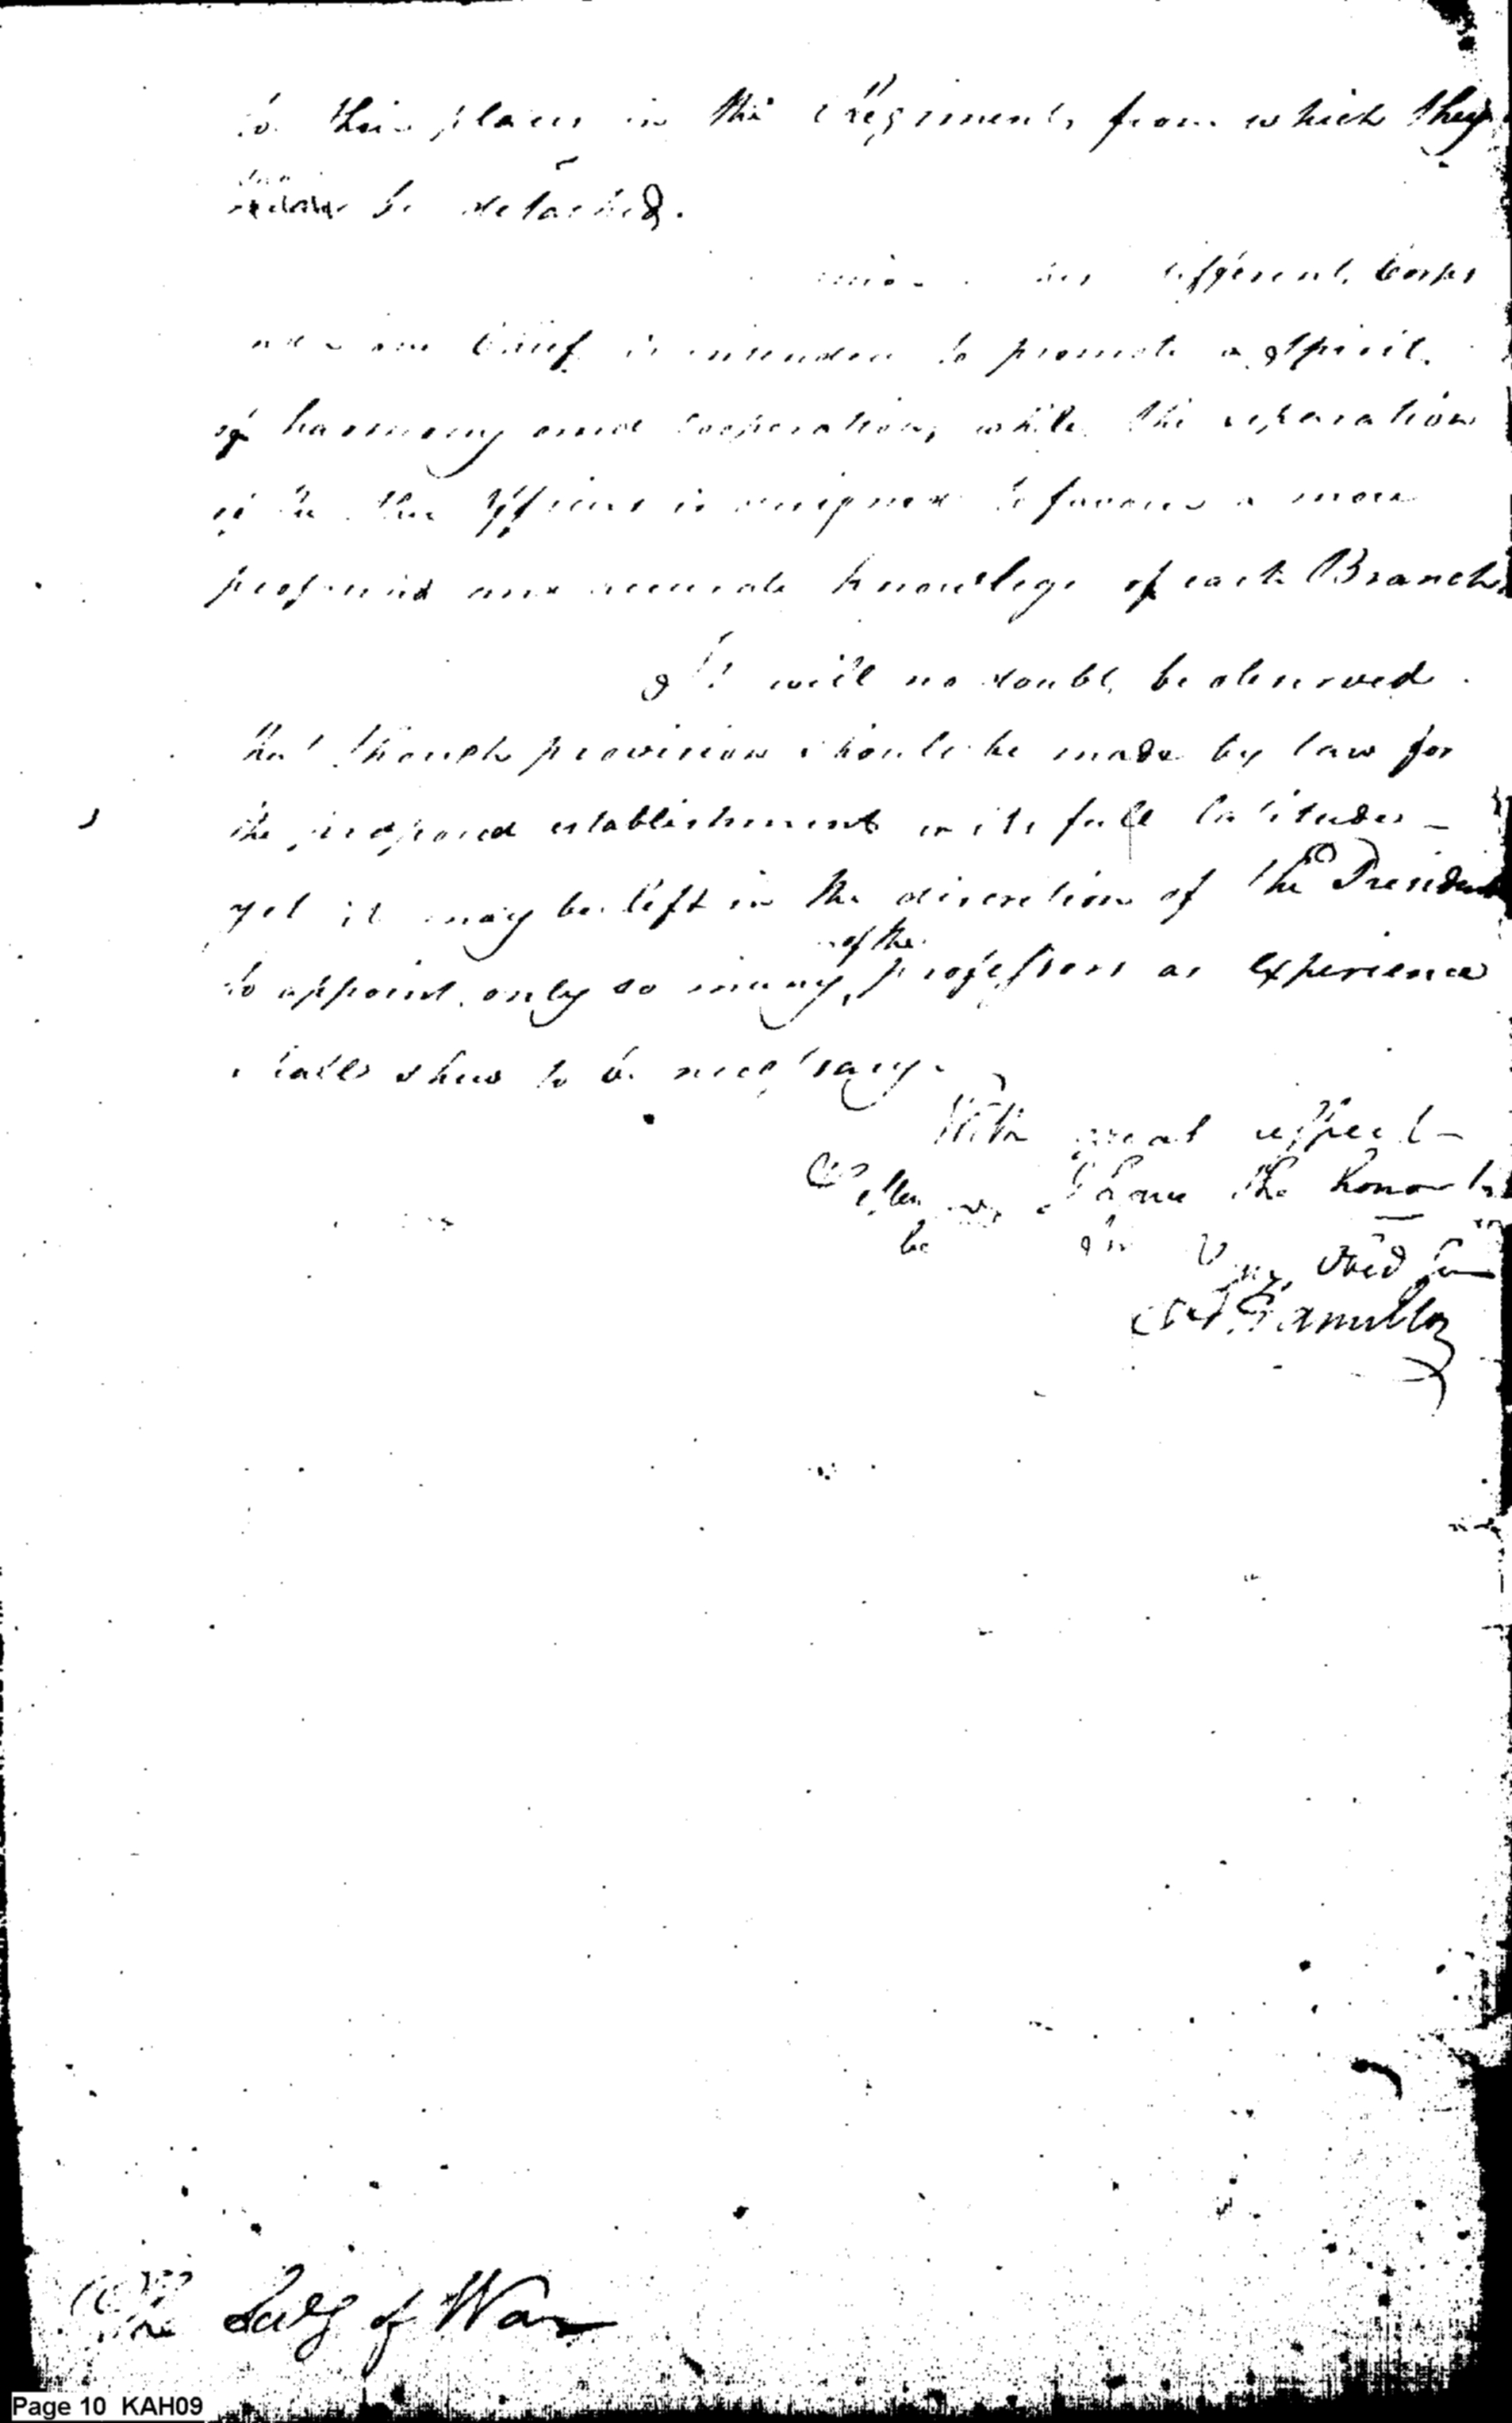 to their places in the Regiments from which they
shall be detached.
different Corps
one Chief is intended to promote a Spirit
of harmony and cooperation, while the separation
is designed to favour a more
profound and accurate knowlege of each Branch
It will no doubt be observed
that though provision should be made by law for
the proposed establishment in its full latitude –
yet it may be left in the discretion of the President
to appoint only so many of the professors as experience
shall shew to be necessary.
With great respect –
I have the honor to
be Sir Your Obed Ser
A Hamilton
The Secy of War
Page 10 KAH09